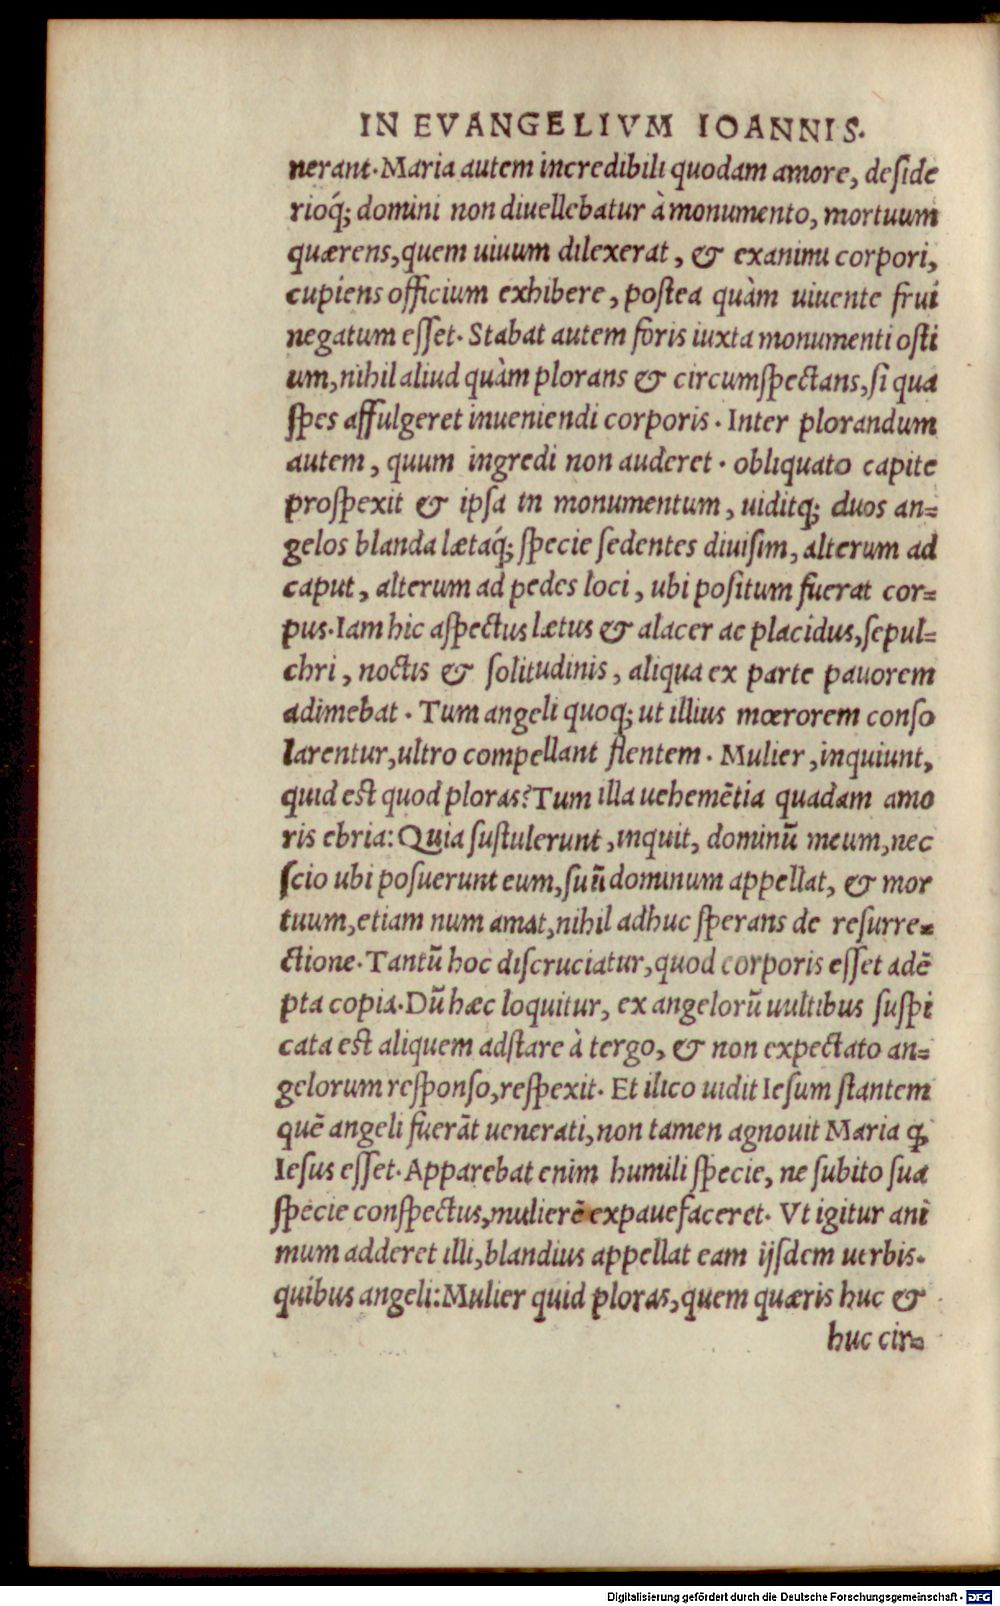 IN EVANGELIVM IOANNIS.
nerant. Maria autem incredibili quodam amore, deſide
rioq́; domini non diuellebatur à monumento, mortuum
quærens, quem uiuum dilexerat, & exanimi corpori,
cupiens officium exhibere, poſtea quàm uiuente frui
negatum eſſet. Stabat autem foris iuxta monumenti oſti
um, nihil aliud quàm plorans & circumſpectans, ſi qua
ſpes affulgeret inueniendi corporis. Inter plorandum
autem, quum ingredi non auderet. obliquato capite
proſpexit & ipſa in monumentum, uiditq; duos an=
gelos blanda lætaq́; ſpecie ſedentes diuiſim, alterum ad
caput, alterum ad pedes loci, ubi poſitum fuerat cor=
pus. Iam hic aſpectus lætus & alacer ac placidus, ſepul=
chri, noctis & ſolitudinis, aliqua ex parte pauorem
adimebat. Tum angeli quoq; ut illius mœrorem conſo
larentur, ultro compellant flentem. Mulier, inquiunt,
quid est quod ploras? Tum illa uehemētia quadam amo
ris ebria: Quia ſuſtulerunt, inquit, dominū meum, nec
ſcio ubi poſuerunt eum, ſuū dominum appellat, & mor
tuum, etiam num amat, nihil adhuc ſperans de reſurre=
ctione. Tantū hoc diſcruciatur, quod corporis eſſet adē
pta copia. Dū hæc loquitur, ex angelorū uultibus ſuſpi
cata est aliquem adſtare à tergo, & non expectato an=
gelorum reſponſo, reſpexit. Et ilico uidit Ieſum ſtantem
quē angeli fuerāt uenerati, non tamen agnouit Maria ꝙ
Ieſus eſſet. Apparebat enim humili ſpecie, ne ſubito ſua
ſpecie conſpectus, mulierē expauefaceret. Vt igitur ani
mum adderet illi, blandius appellat eam ijſdem uerbis.
quibus angeli: Mulier quid ploras, quem quæris huc &
huc cir=
Digitalisierung gefördert durch die Deutsche Forschungsgemeinschaft - DFG